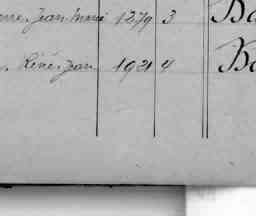 Jean Marie 1279 3 Ba
René Jean 1921 4 Ba